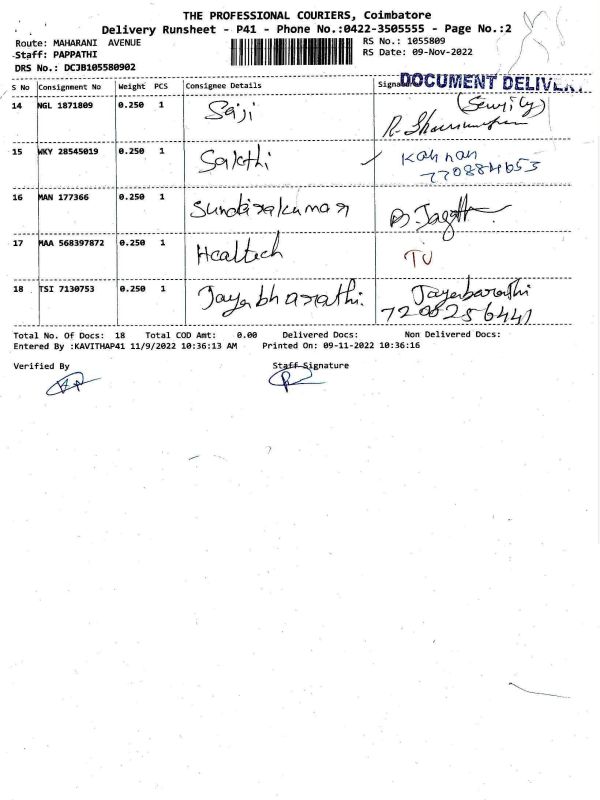 THE PROFESSIONAL COURIERS, Coimbatore
Delivery Runsheet - P41 - Phone No.:0422-3505555 - Page No.:2
Route: MAHARANI AVENUE RS No.: 1055809
Staff: PAPPATHI RS Date: 09-Nov-2022
DRS No.: DCJB105580902
DOCUMENT DELIVERY
S No Consignment No Weight PCS Consignee Details
14 NGL 1871809 0.250 1 Saiji (Security)
15 WKY 28545019 0.250 1 Sakthi Kannan
16 MAN 177366 0.250 1
17 MAA 568397872 0.250 1 Healtech TU
18 TSI 7130753 0.250 1 Jayabharathi. Jayabarathi
7200256441
Total No. Of Docs: 18 Total COD Amt: 0.00 Delivered Docs: Non Delivered Docs:
Entered By :KAVITHAP41 11/9/2022 10:36:13 AM Printed On: 09-11-2022 10:36:16
Verified By Staff Signature